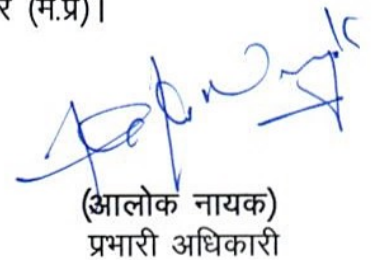 (म.प्र)।
(आलोक नायक)
प्रभारी अधिकारी